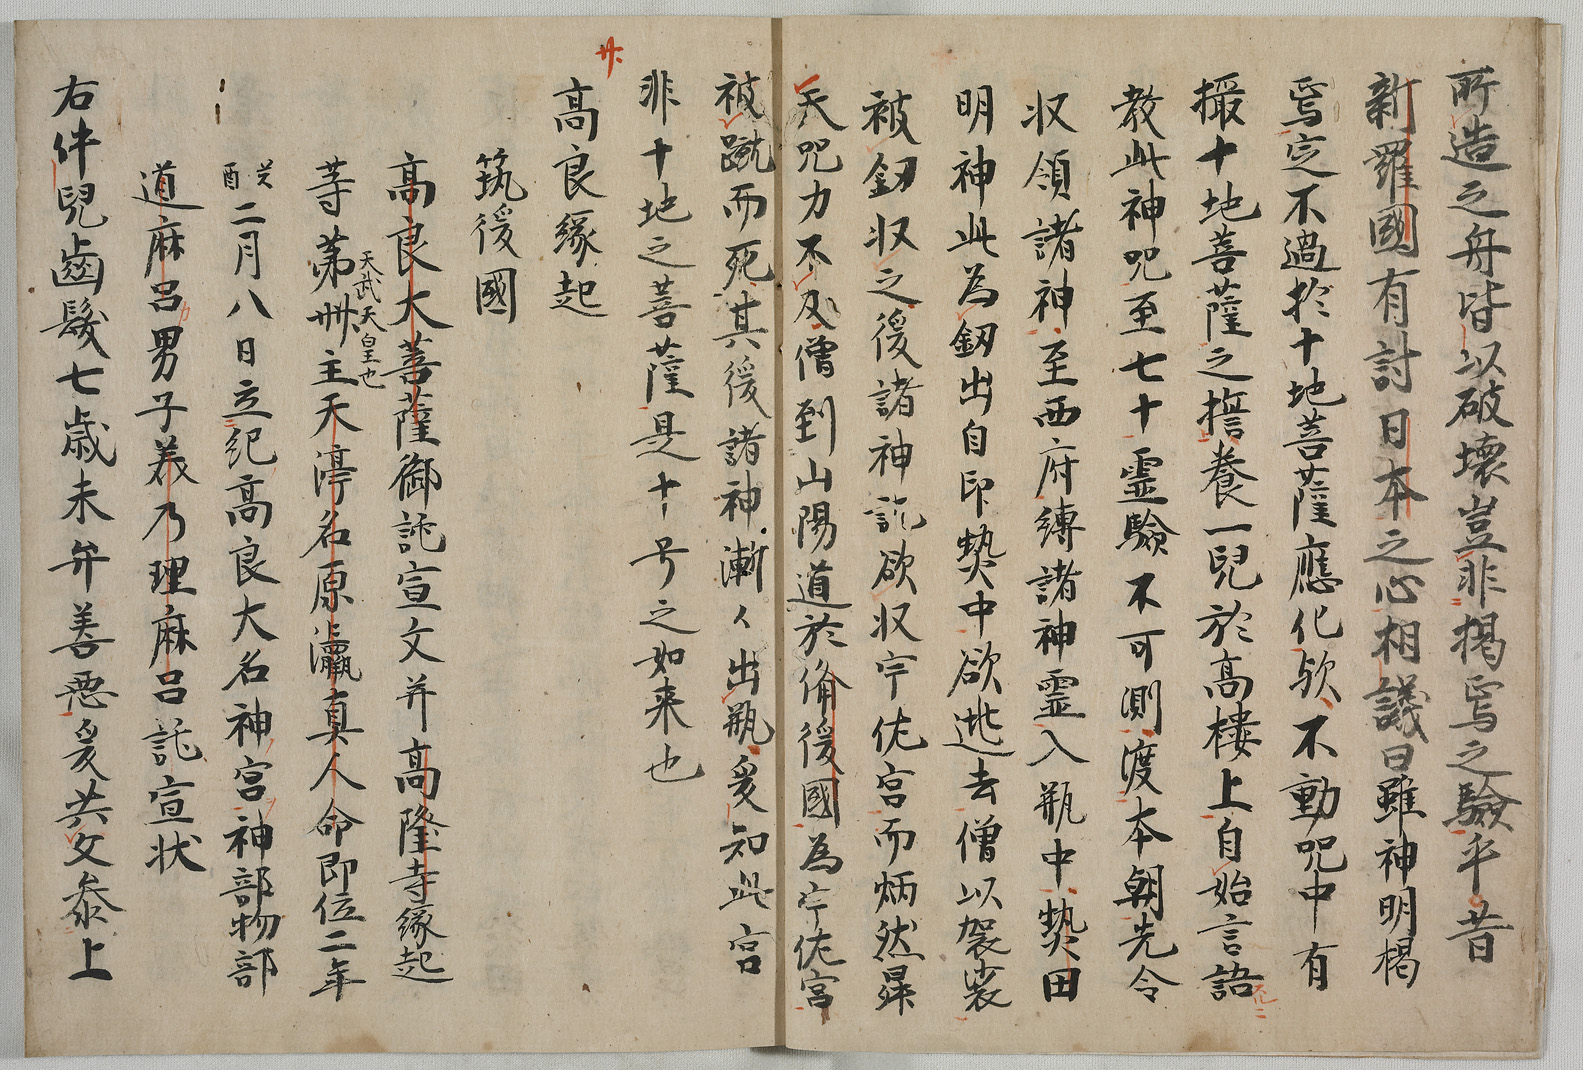 所造之舟皆以破壊豈非掲焉之驗乎昔
新羅國有討日本之心相議曰雖神明掲
焉定不過於十地菩薩應化欤不動咒中有
撮十地菩薩之撫養一兒於高樓上自始言語
教此神咒至七十霊驗不可測渡本朝先令
収領諸神至西府縛諸神霊入瓶中𫝑田
明神此為釼出自印𫝑中欲逃去僧以袈裟
被釼収之後諸神訖欲収宇佐宮而炳然昇
天咒力不及僧到山陽道於俻後國為宇佐宮
被蹴而死其後諸神漸々出瓶爰知此宮
非十地之菩薩是十号之如来也
高良縁起
筑後國
高良大菩薩御託宣文并高隆寺縁起
等第卌主天渟名原瀛真人命即位二年
天武天皇也
癸酉二月八日立紀高良大名神宮神部物部
道麻呂男子美乃理麻呂託宣状
右件兒齒髮七歳未弁善惡爰共父叅上